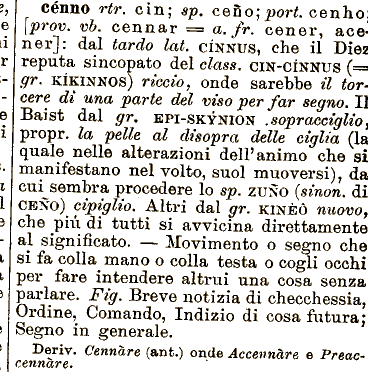 cénno rtr. cin; sp. ceño; port. cenho;
[prov. vb. cennar = a. fr. cener, ace-
ner]: dal tardo lat. CÍNNUS, che il Diez
reputa sincopato del class. CIN-CÍNNUS (=
gr. KÍKINNOS) riccio, onde sarebbe il tor-
cere di una parte del viso per far segno. Il
Baist dal gr. EPI-SKÝNION sopracciglio,
propr. la pelle al disopra delle ciglia (la
quale nelle alterazioni dell'animo che si
manifestano nel volto, suol muoversi), da
cui sembra procedere lo sp. ZUÑO (sinon. di
CEÑO) cipiglio. Altri dal gr. KINÈÔ nuovo,
che più di tutti si avvicina direttamente
al significato. — Movimento o segno che
si fa colla mano o colla testa o cogli occhi
per fare intendere altrui una cosa senza
parlare. Fig. Breve notizia di checchessia,
Ordine, Comando, Indizio di cosa futura;
Segno in generale.
Deriv. Cennàre (ant.) onde Accennàre e Preac-
cennàre.